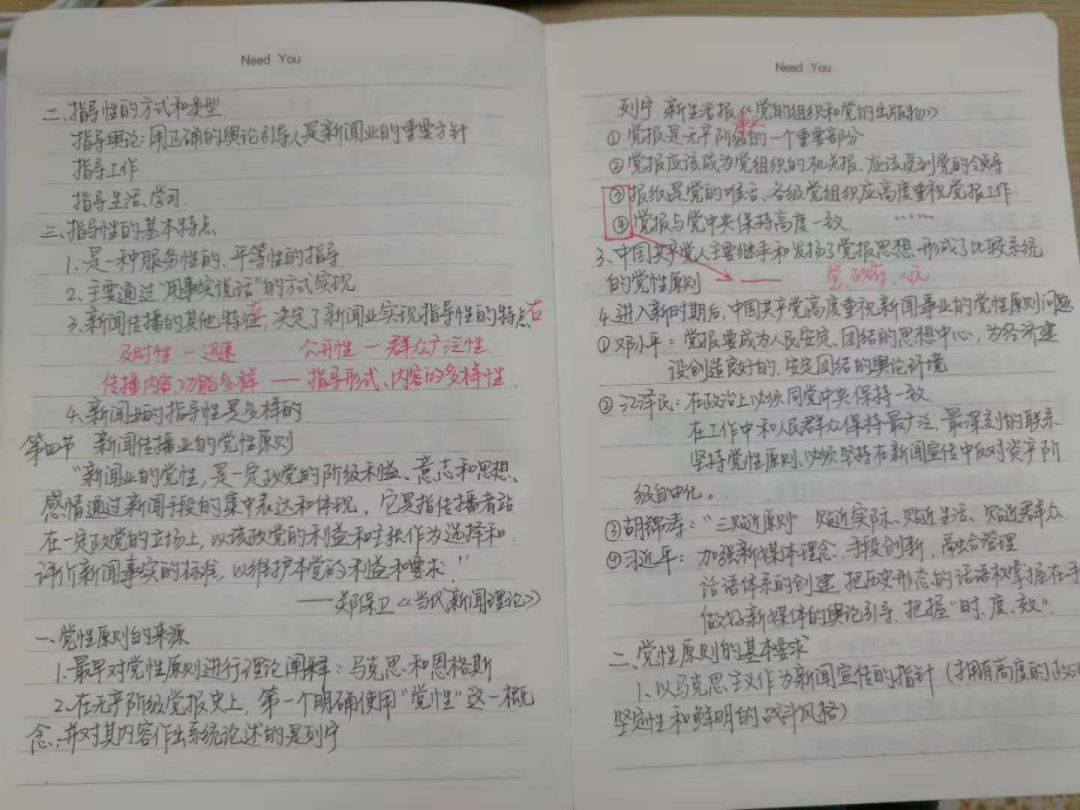 Need You
二、指导性的方式和类型
指导舆论：用正确的舆论引导人是新闻业的重要方针
指导工作
指导生活、学习
三、指导性的基本特点
1、是一种服务性的、平等性的指导
2、主要通过"用事实说话"的方式实现
3、新闻传播的其他特征，决定了新闻业实现指导性的特点
及时性 — 迅速 公开性 — 群众广泛性
传播内容、功能多样 — 指导形式、内容的多样性
4、新闻业的指导性是多样的
第四节 新闻传播业的党性原则
"新闻业的党性，是一定政党的阶级利益、意志和思想、
感情通过新闻手段的集中表达和体现，它是指传播者站
在一定政党的立场上，以该政党的利益和主张作为选择和
评价新闻事实的标准，以维护本党的利益和要求！"
——郑保卫《当代新闻理论》
一、党性原则的来源
1、最早对党性原则进行理论阐释：马克思和恩格斯
2、在无产阶级党报史上，第一个明确使用"党性"这一概
念，并对其内容作出系统论述的是列宁
Need You
列宁 新生活报《党的组织和党的出版物》
① 党报是无产阶级事业的一个重要部分
② 党报应该成为党组织的机关报、应该受到党的领导
③ 报纸是党的喉舌、各级党组织应高度重视党报工作
④ 党报与党中央保持高度一致 ……
3、中国共产党人主要继承和发扬了党报思想，形成了比较系统
的党性原则 党、政府、人民
4、进入新时期后，中国共产党高度重视新闻事业的党性原则问题
① 邓小平：党报要成为人民安定、团结的思想中心，为经济建
设创造良好的、安定团结的舆论环境
② 江泽民：在政治上必须同党中央保持一致
在工作中和人民群众保持最广泛、最深刻的联系
坚持党性原则、必须坚持在新闻宣传中反对资产阶
级自由化。
③ 胡锦涛："三贴近原则" 贴近实际、贴近生活、贴近群众
④ 习近平：加强新媒体理念、手段创新，融合管理
话语体系的创建，把历史形态的话语权掌握在手
做好新媒体的舆论引导，把握"时、度、效"
二、党性原则的基本要求
1、以马克思主义作为新闻宣传的指针（拥有高度的政治
坚定性和鲜明的战斗风格）